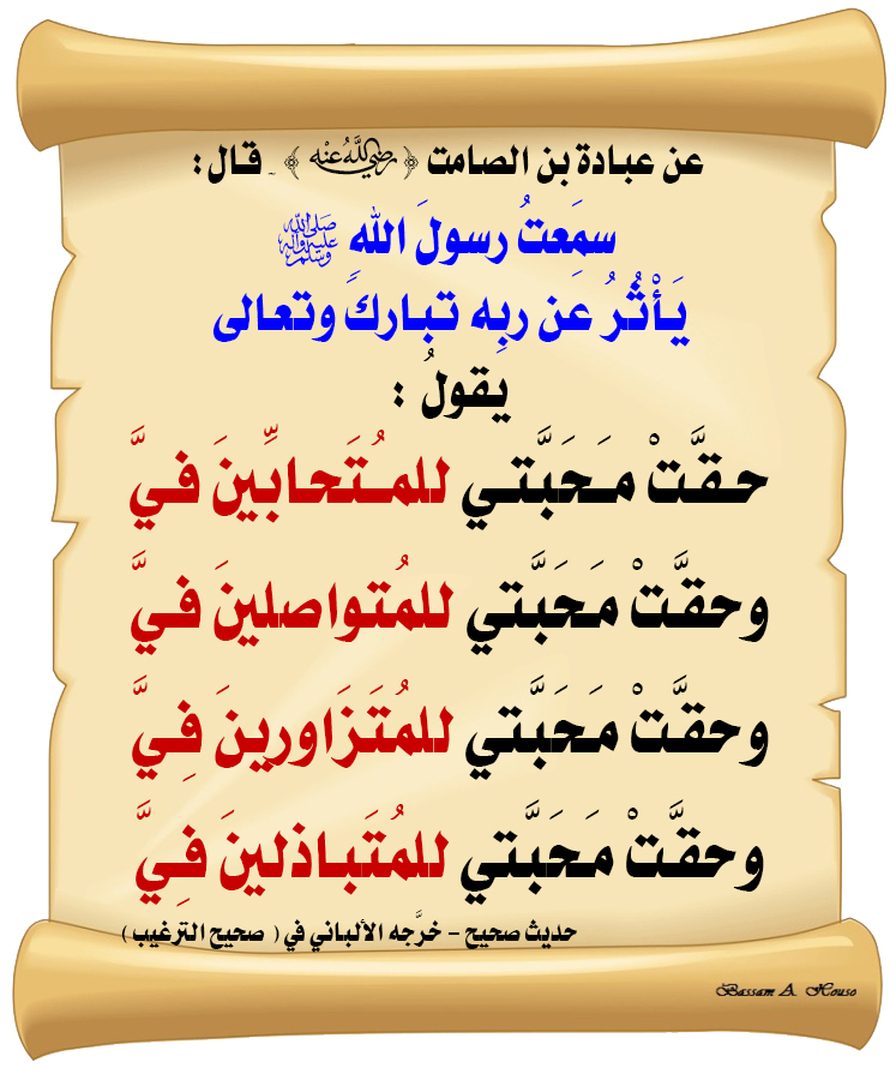 عن عبادة بن الصامت ﴿ رضي الله عنه ﴾ - قال :
سمَِعتُ رسولَ اللهِ ﷺ
يَأْثُرُ عن ربِه تبارك وتعالى
يقولُ :
حقَّتْ مَحَبَّتي للمُتَحابِّينَ فيَّ
وحقَّتْ مَحَبَّتي للمُتواصلينَ فيَّ
وحقَّتْ مَحَبَّتي للمُتَزَاورينَ فِيَّ
وحقَّتْ مَحَبَّتي للمُتَباذلينَ فِيَّ
حديث صحيح - خرَّجه الألباني في ( صحيح الترغيب )
Bassam A. Houso